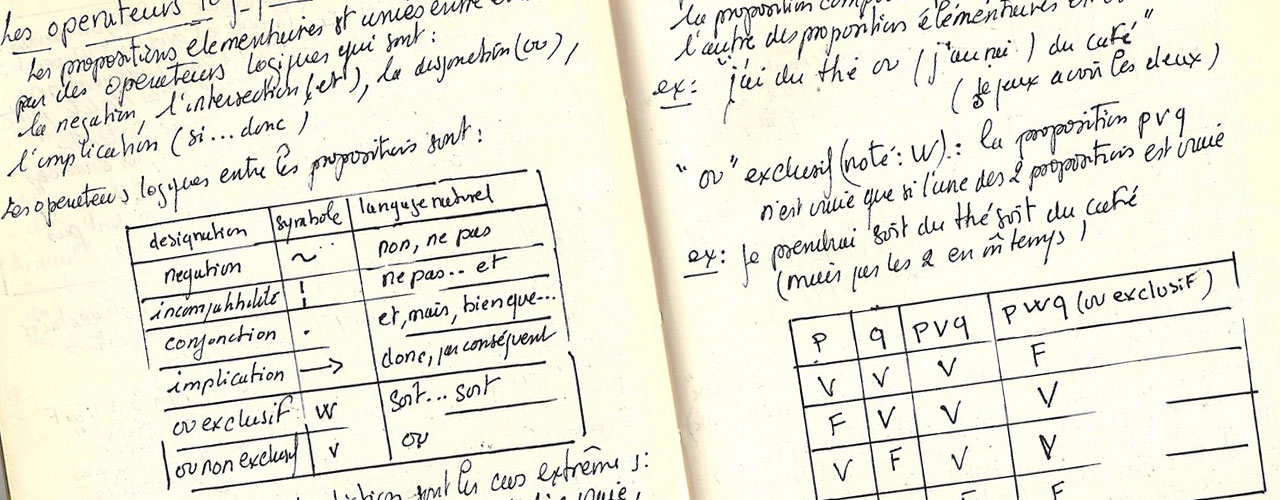 Les operateurs
Les propositions elementaires st unies entre
par des operateurs logiques qui sont:
la negation, l'intersection (et), la disjonction (ou),
l'implication (si... donc)
Les operateurs logiques entre les propositions sont:
designation symbole language naturel
negation ~ non, ne pas
incompatibilité ¦ ne pas.. et
conjonction . et, mais, bien que...
implication → donc, par conséquent
ou exclusif W soit... soit
ou non exclusif v ou
sont les cas extrême s:
la proposition
l'autre des propositions élémentaires
ex: "j'ai du thé ou (j'aurai) du café"
(je peux avoir les deux)
"ou" exclusif (noté: W).: la proposition p v q
n'est vraie que si l'une des 2 propositions est vraie
ex: je prendrai soit du thé soit du café
(mais pas les 2 en m̂ temps)
p q p v q p W q (ou exclusif)
V V V F
F V V V
V F V V
F F